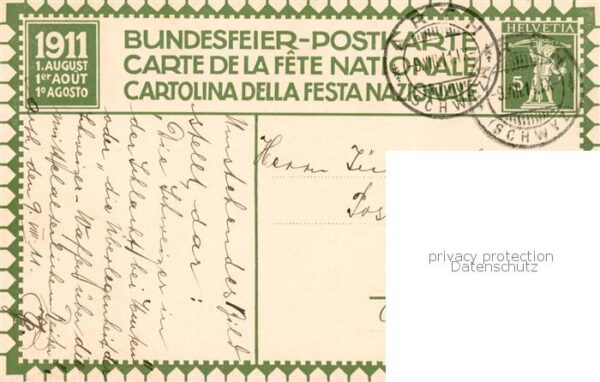 1911
1. AUGUST
1er AOÛT
1º AGOSTO
BUNDESFEIER-POSTKARTE
CARTE DE LA FÊTE NATIONALE
CARTOLINA DELLA FESTA NAZIONALE
HELVETIA
5
(SCHWYZ)
(SCHWYZ)
Umstehendes Bild
stellt dar:
"Die Schweizer in
der Schlacht bei
oder "die Überlegenheit der
Schweizer-Waffen über die
mittelalterlichen Reiter"
den 9. VIII. 11.
Herrn
privacy protection
Datenschutz